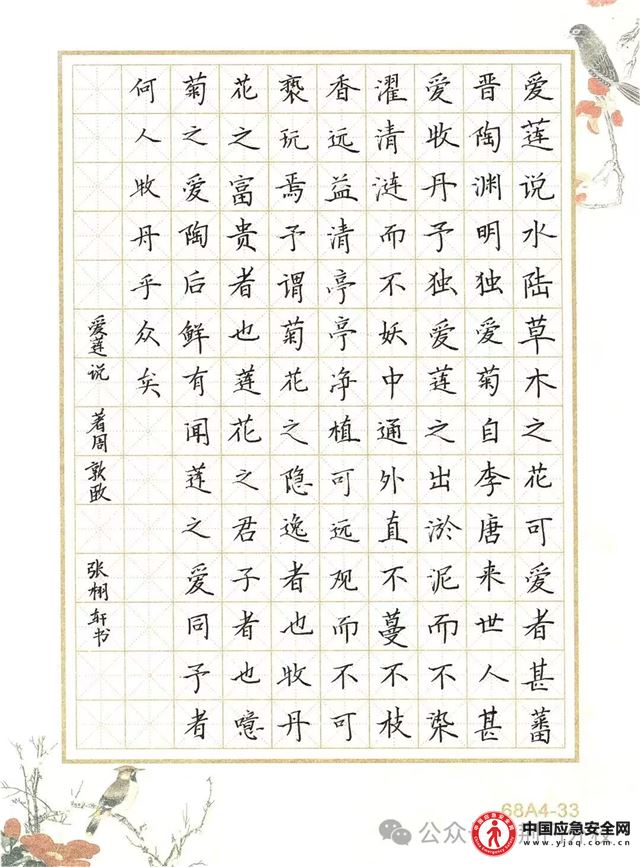 爱莲说水陆草木之花可爱者甚蕃
晋陶渊明独爱菊自李唐来世人甚
爱牧丹予独爱莲之出淤泥而不染
濯清涟而不妖中通外直不蔓不枝
香远益清亭亭净植可远观而不可
亵玩焉予谓菊花之隐逸者也牧丹
花之富贵者也莲花之君子者也噫
菊之爱陶后鲜有闻莲之爱同予者
何人牧丹乎众矣
爱莲说 著周敦 张栩轩书
68A4-33
公众
中国应急安全网
www.yjaq.com.cn